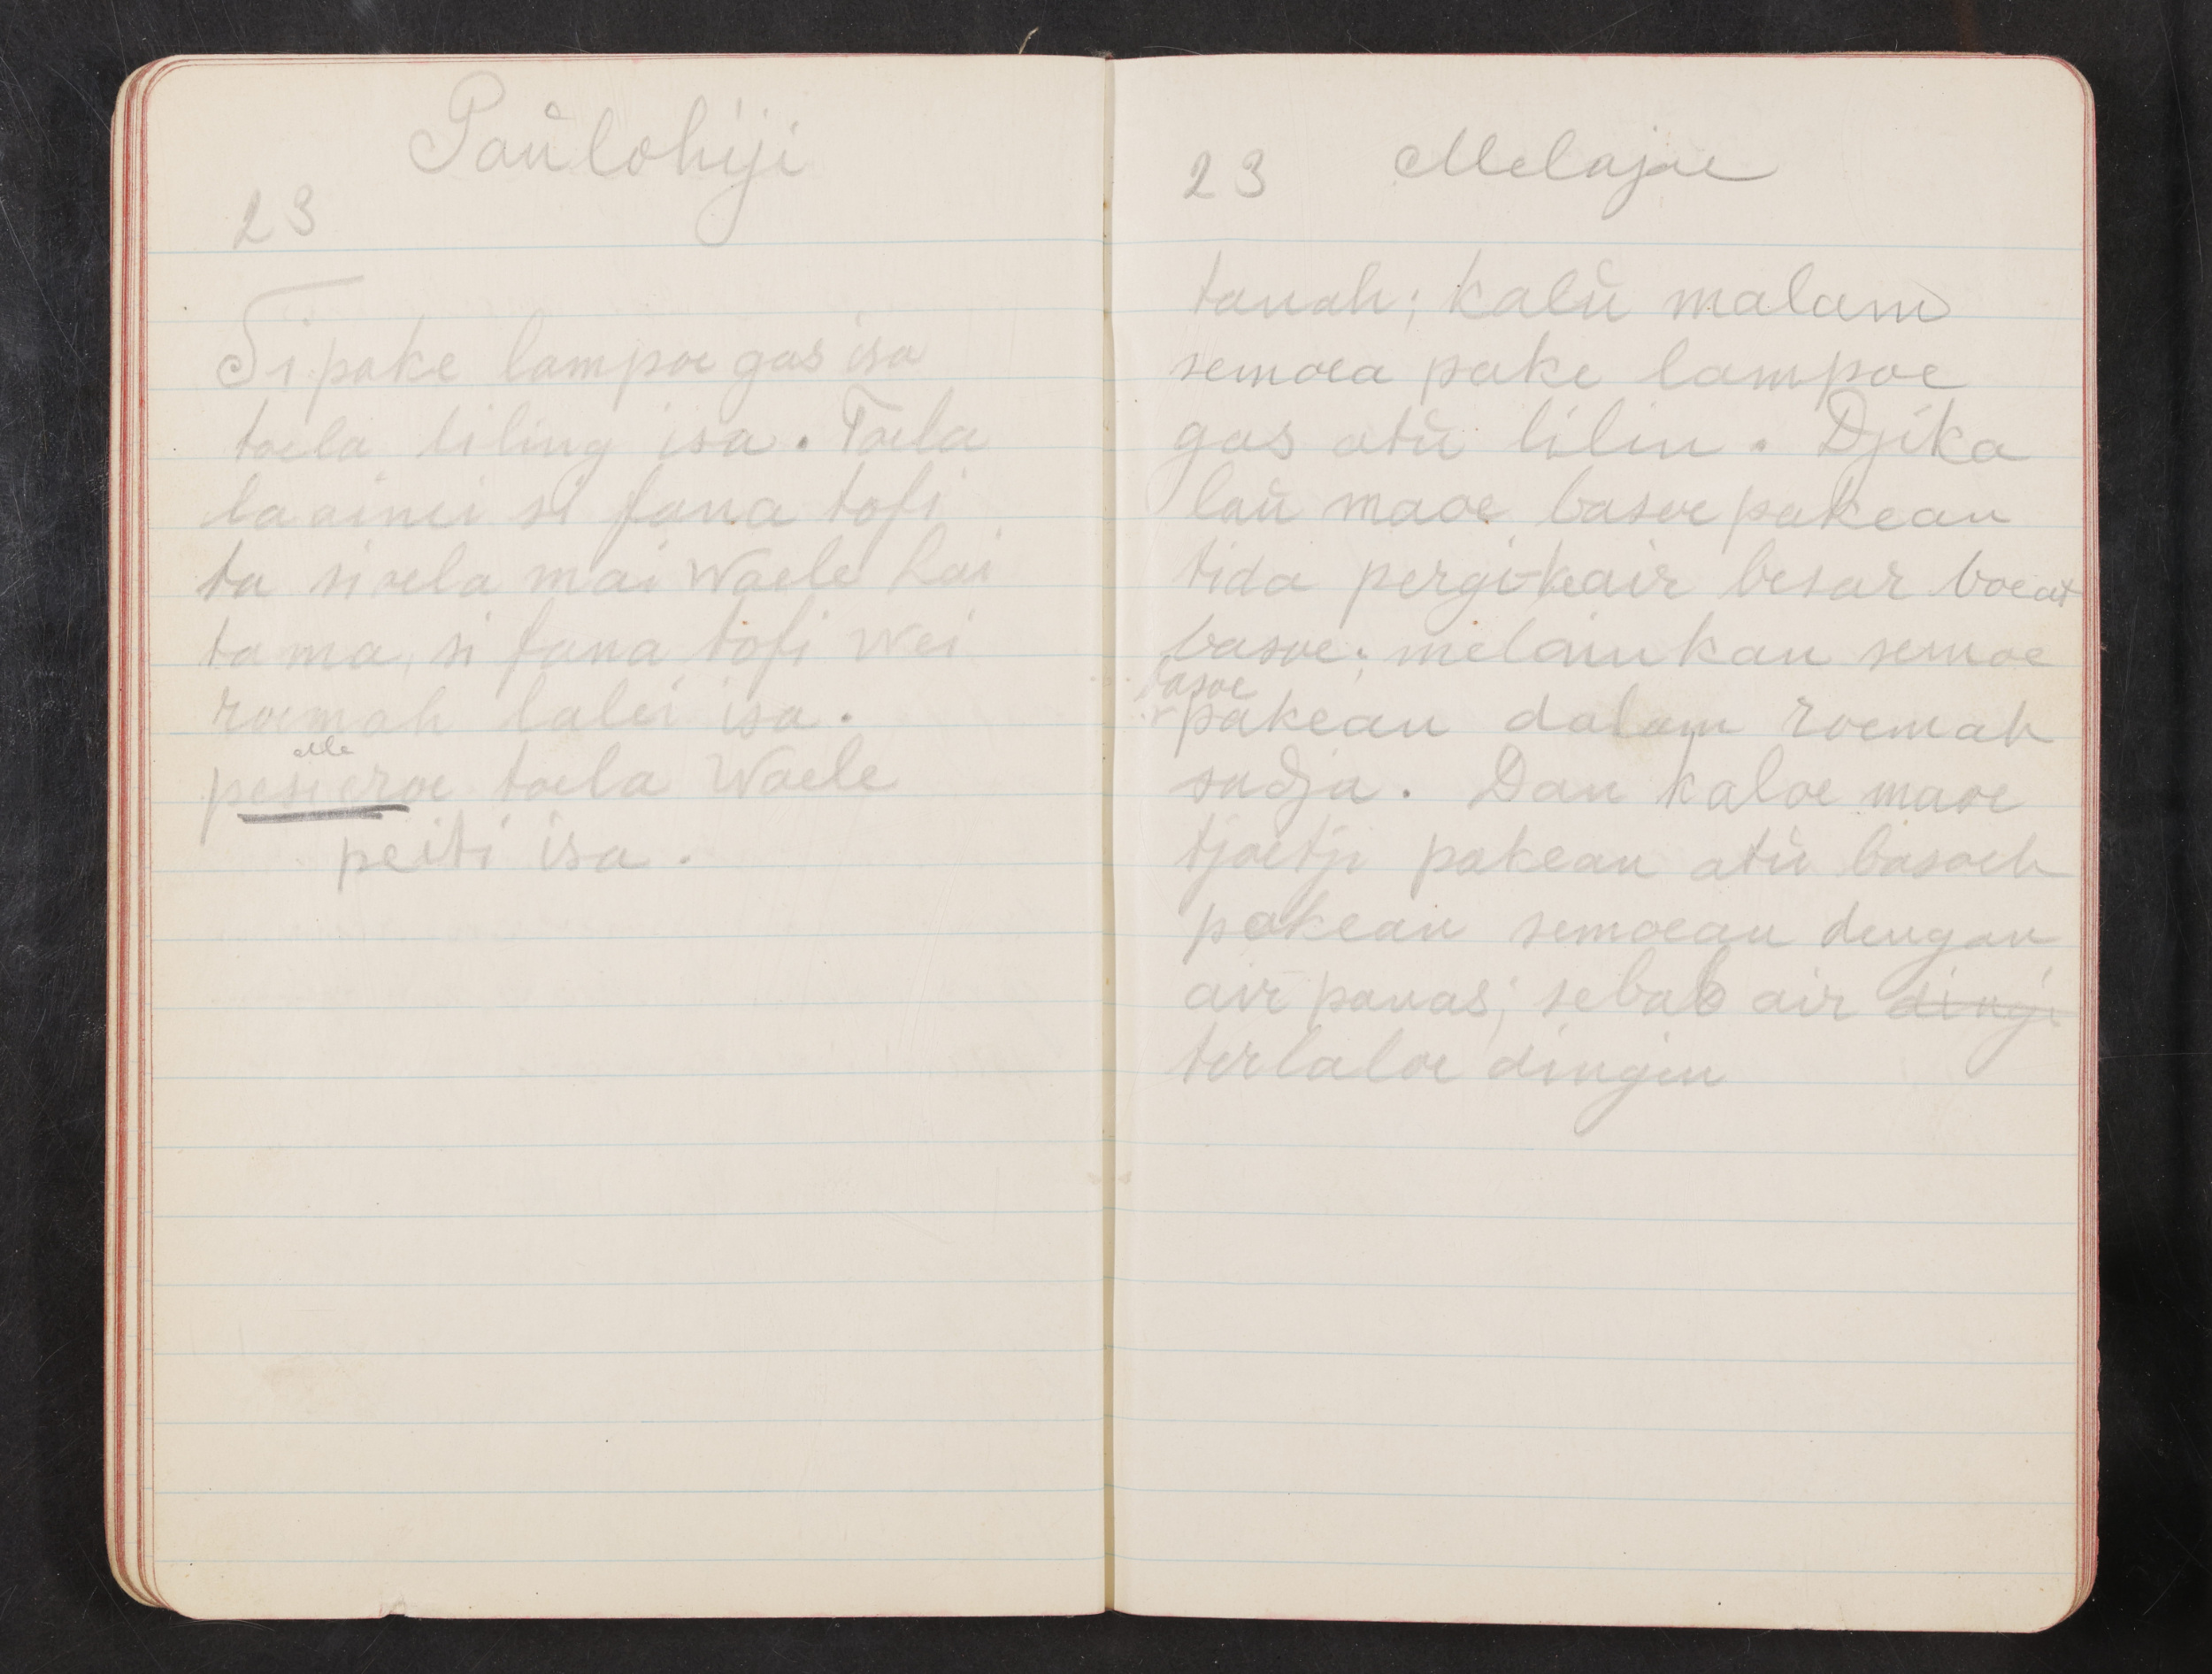 Paŭlohiji
23
Si pake lampoe gas isa
toela liling isa. Toela
laainei si fana tofi
ta si oela mai Waele hai
tama, si fana tofi wei
roemah lalei isa.
elle
pesieroe toela Waele
peiti isa.
23 Melajoe
tanah; kalŭ malam
semoea pake lampoe
gas atŭ lilin. Djika
laŭ maoe basoe pakean
tida pergi keair besar boeat
basoe; melainkan semoe
basoe
pakean dalam roemah
sadja. Dan kaloe maoe
tjoetji pakean atŭ basoeh
pakean semoean dengan
air panas; sebab air dingi
terlaloe dingin